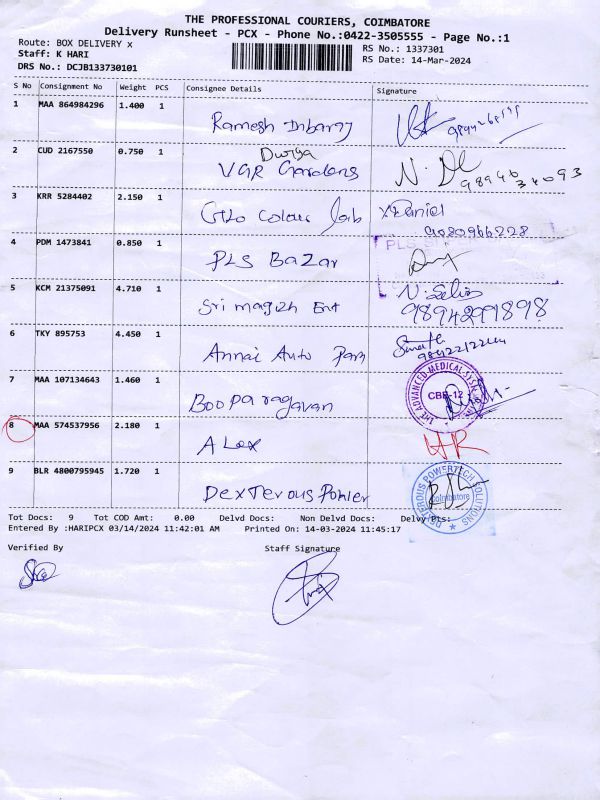 THE PROFESSIONAL COURIERS, COIMBATORE
Delivery Runsheet - PCX - Phone No.:0422-3505555 - Page No.:1
Route: BOX DELIVERY x
Staff: K HARI
DRS No.: DCJB133730101
RS No.: 1337301
RS Date: 14-Mar-2024
S No Consignment No Weight PCS Consignee Details Signature
1 MAA 864984296 1.400 1 Ramesh
2 CUD 2167550 0.750 1 Durga VGR Gardens N.
98946 34093
3 KRR 5284402 2.150 1 Colour lab Daniel
9080966228
4 PDM 1473841 0.850 1 PLS BaZar
PLS
5 KCM 21375091 4.710 1 Sri magizh Ent N. Selvi
98942991898
6 TKY 895753 4.450 1 Annai Auto Parts
7 MAA 107134643 1.460 1 Boopa ragavan
THE ADVANCED MEDICAL
CBE-12
8 MAA 574537956 2.180 1 ALex HR
9 BLR 4800795945 1.720 1 DexTerous Power
DEXTEROUS POWERTECH SOLUTIONS
Coimbatore
Tot Docs: 9 Tot COD Amt: 0.00 Delvd Docs: Non Delvd Docs: Delvy Pts:
Entered By :HARIPCX 03/14/2024 11:42:01 AM Printed On: 14-03-2024 11:45:17
Verified By Staff Signature